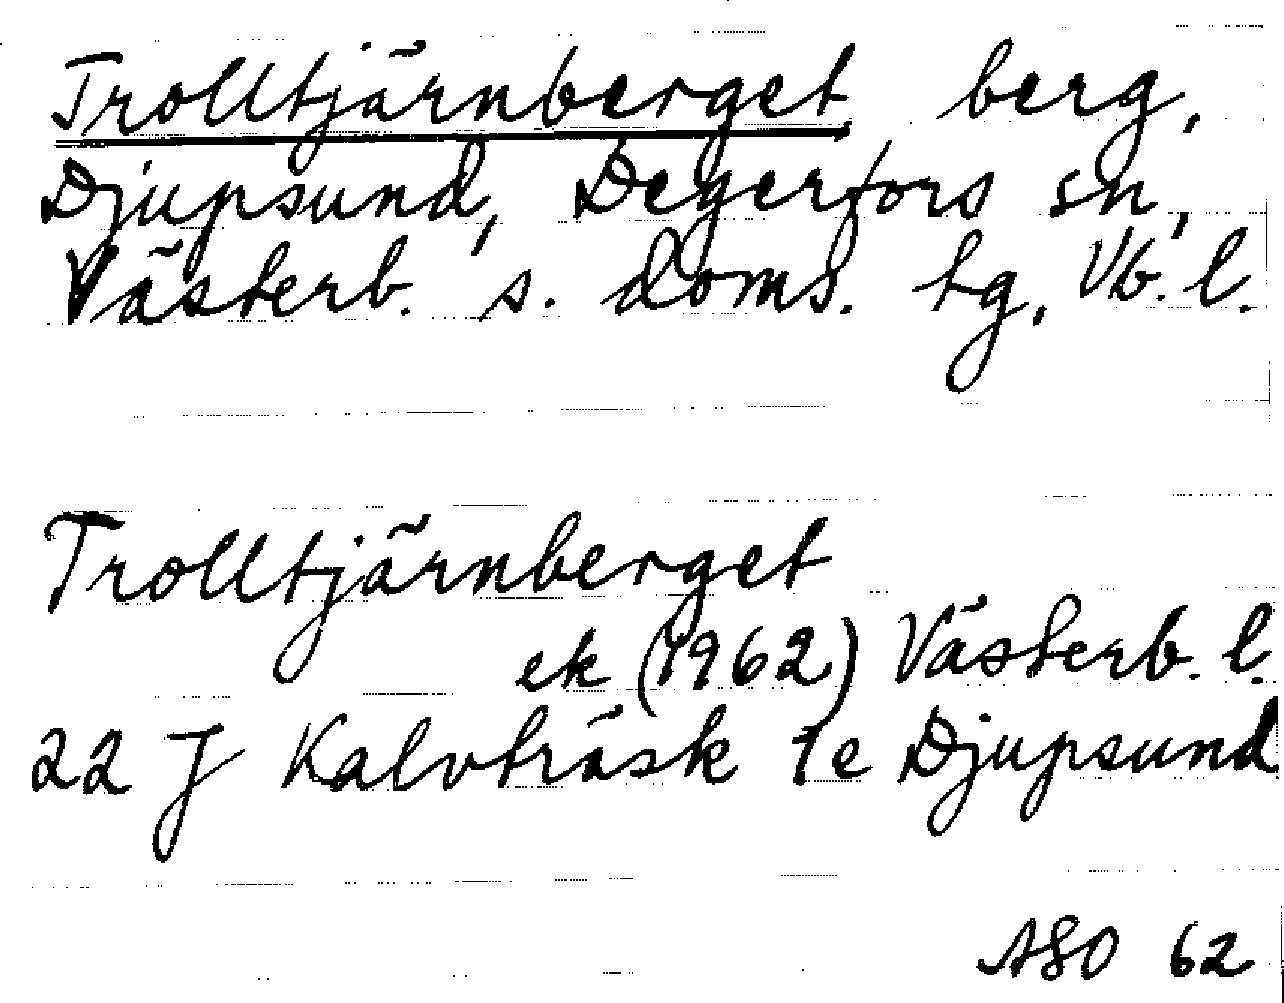 Trolltjärnberget, berg,
Djupsund, Degerfors sn,
Västerb. s. doms. tg, Vb. l.
Trolltjärnberget
ek (1962) Västerb. l.
22 J Kalvträsk 1e Djupsund
ASO 62